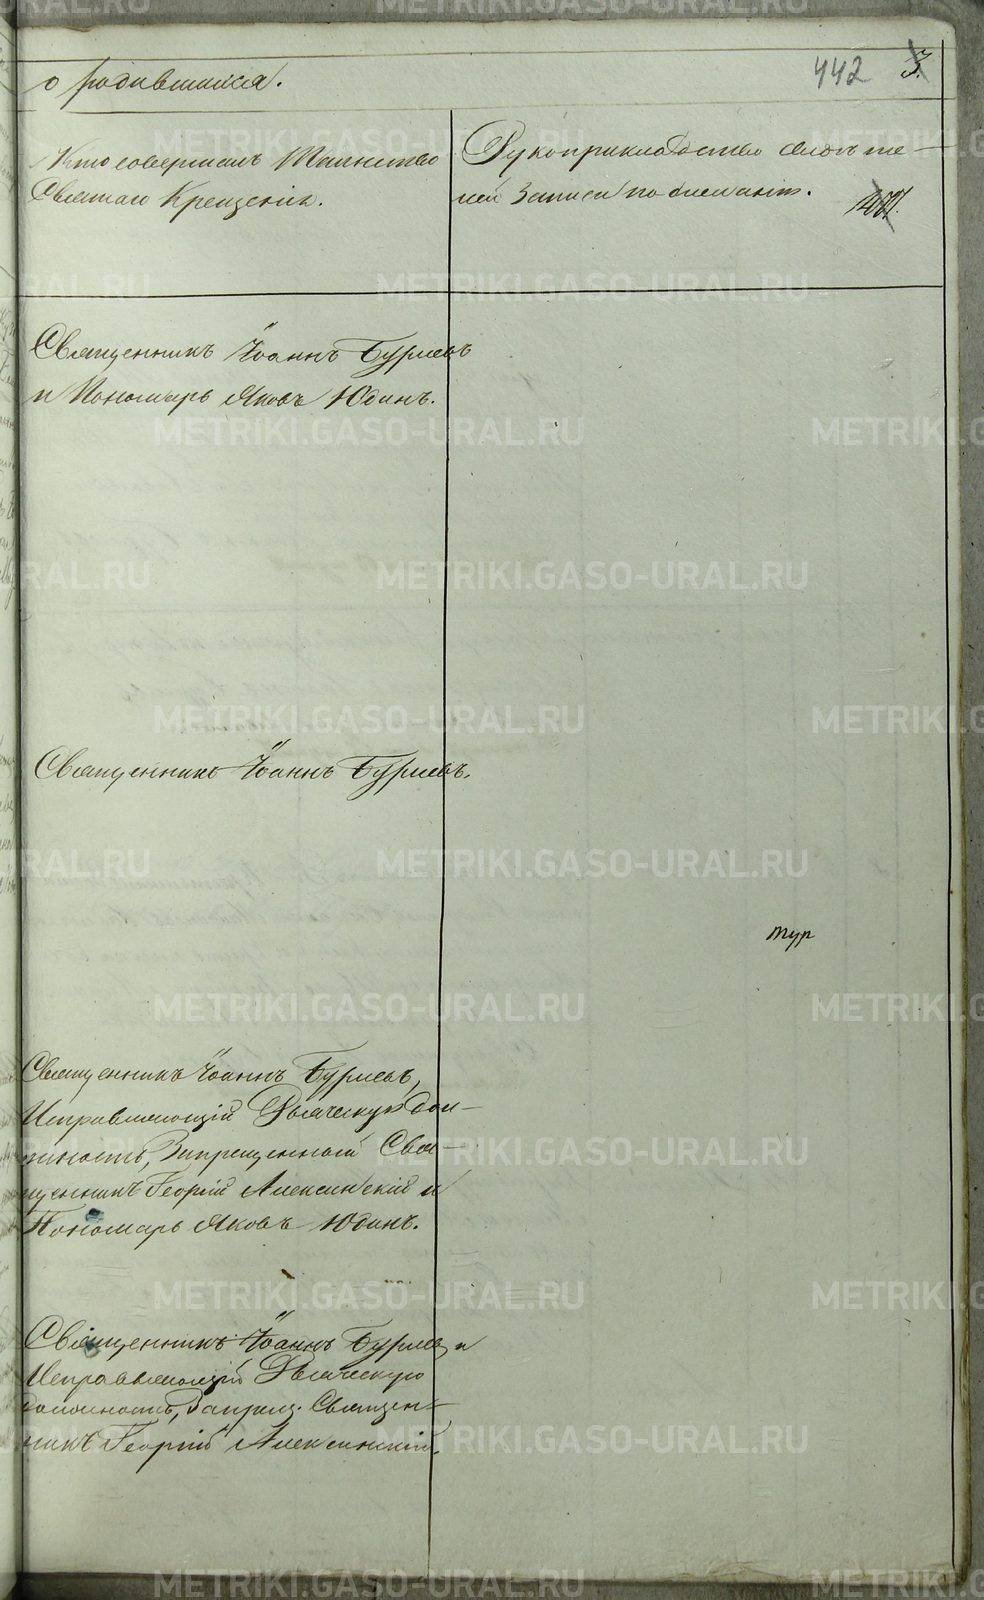 о родившихся.
442 3.
Кто совершалъ Таинство
Святаго Крещенія.
Рукоприкладство свидѣте-
лей записи по желанію.
Священникъ Іоаннъ Бурмевъ
и Пономарь Яковъ Юдинъ.
Священникъ Іоаннъ Бурмевъ.
тур
Священникъ Іоаннъ Бурмевъ,
Исправляющій Дьяческую дол-
жность, Запрещенный Свя-
щенникъ Георгій Алексинскій и
Пономарь Яковъ Юдинъ.
Священникъ Іоаннъ Бурмевъ и
Исправляющій Дьяческую
должность, Запрещ. Священ-
никъ Георгій Алексинскій.
METRIKI.GASO-URAL.RU